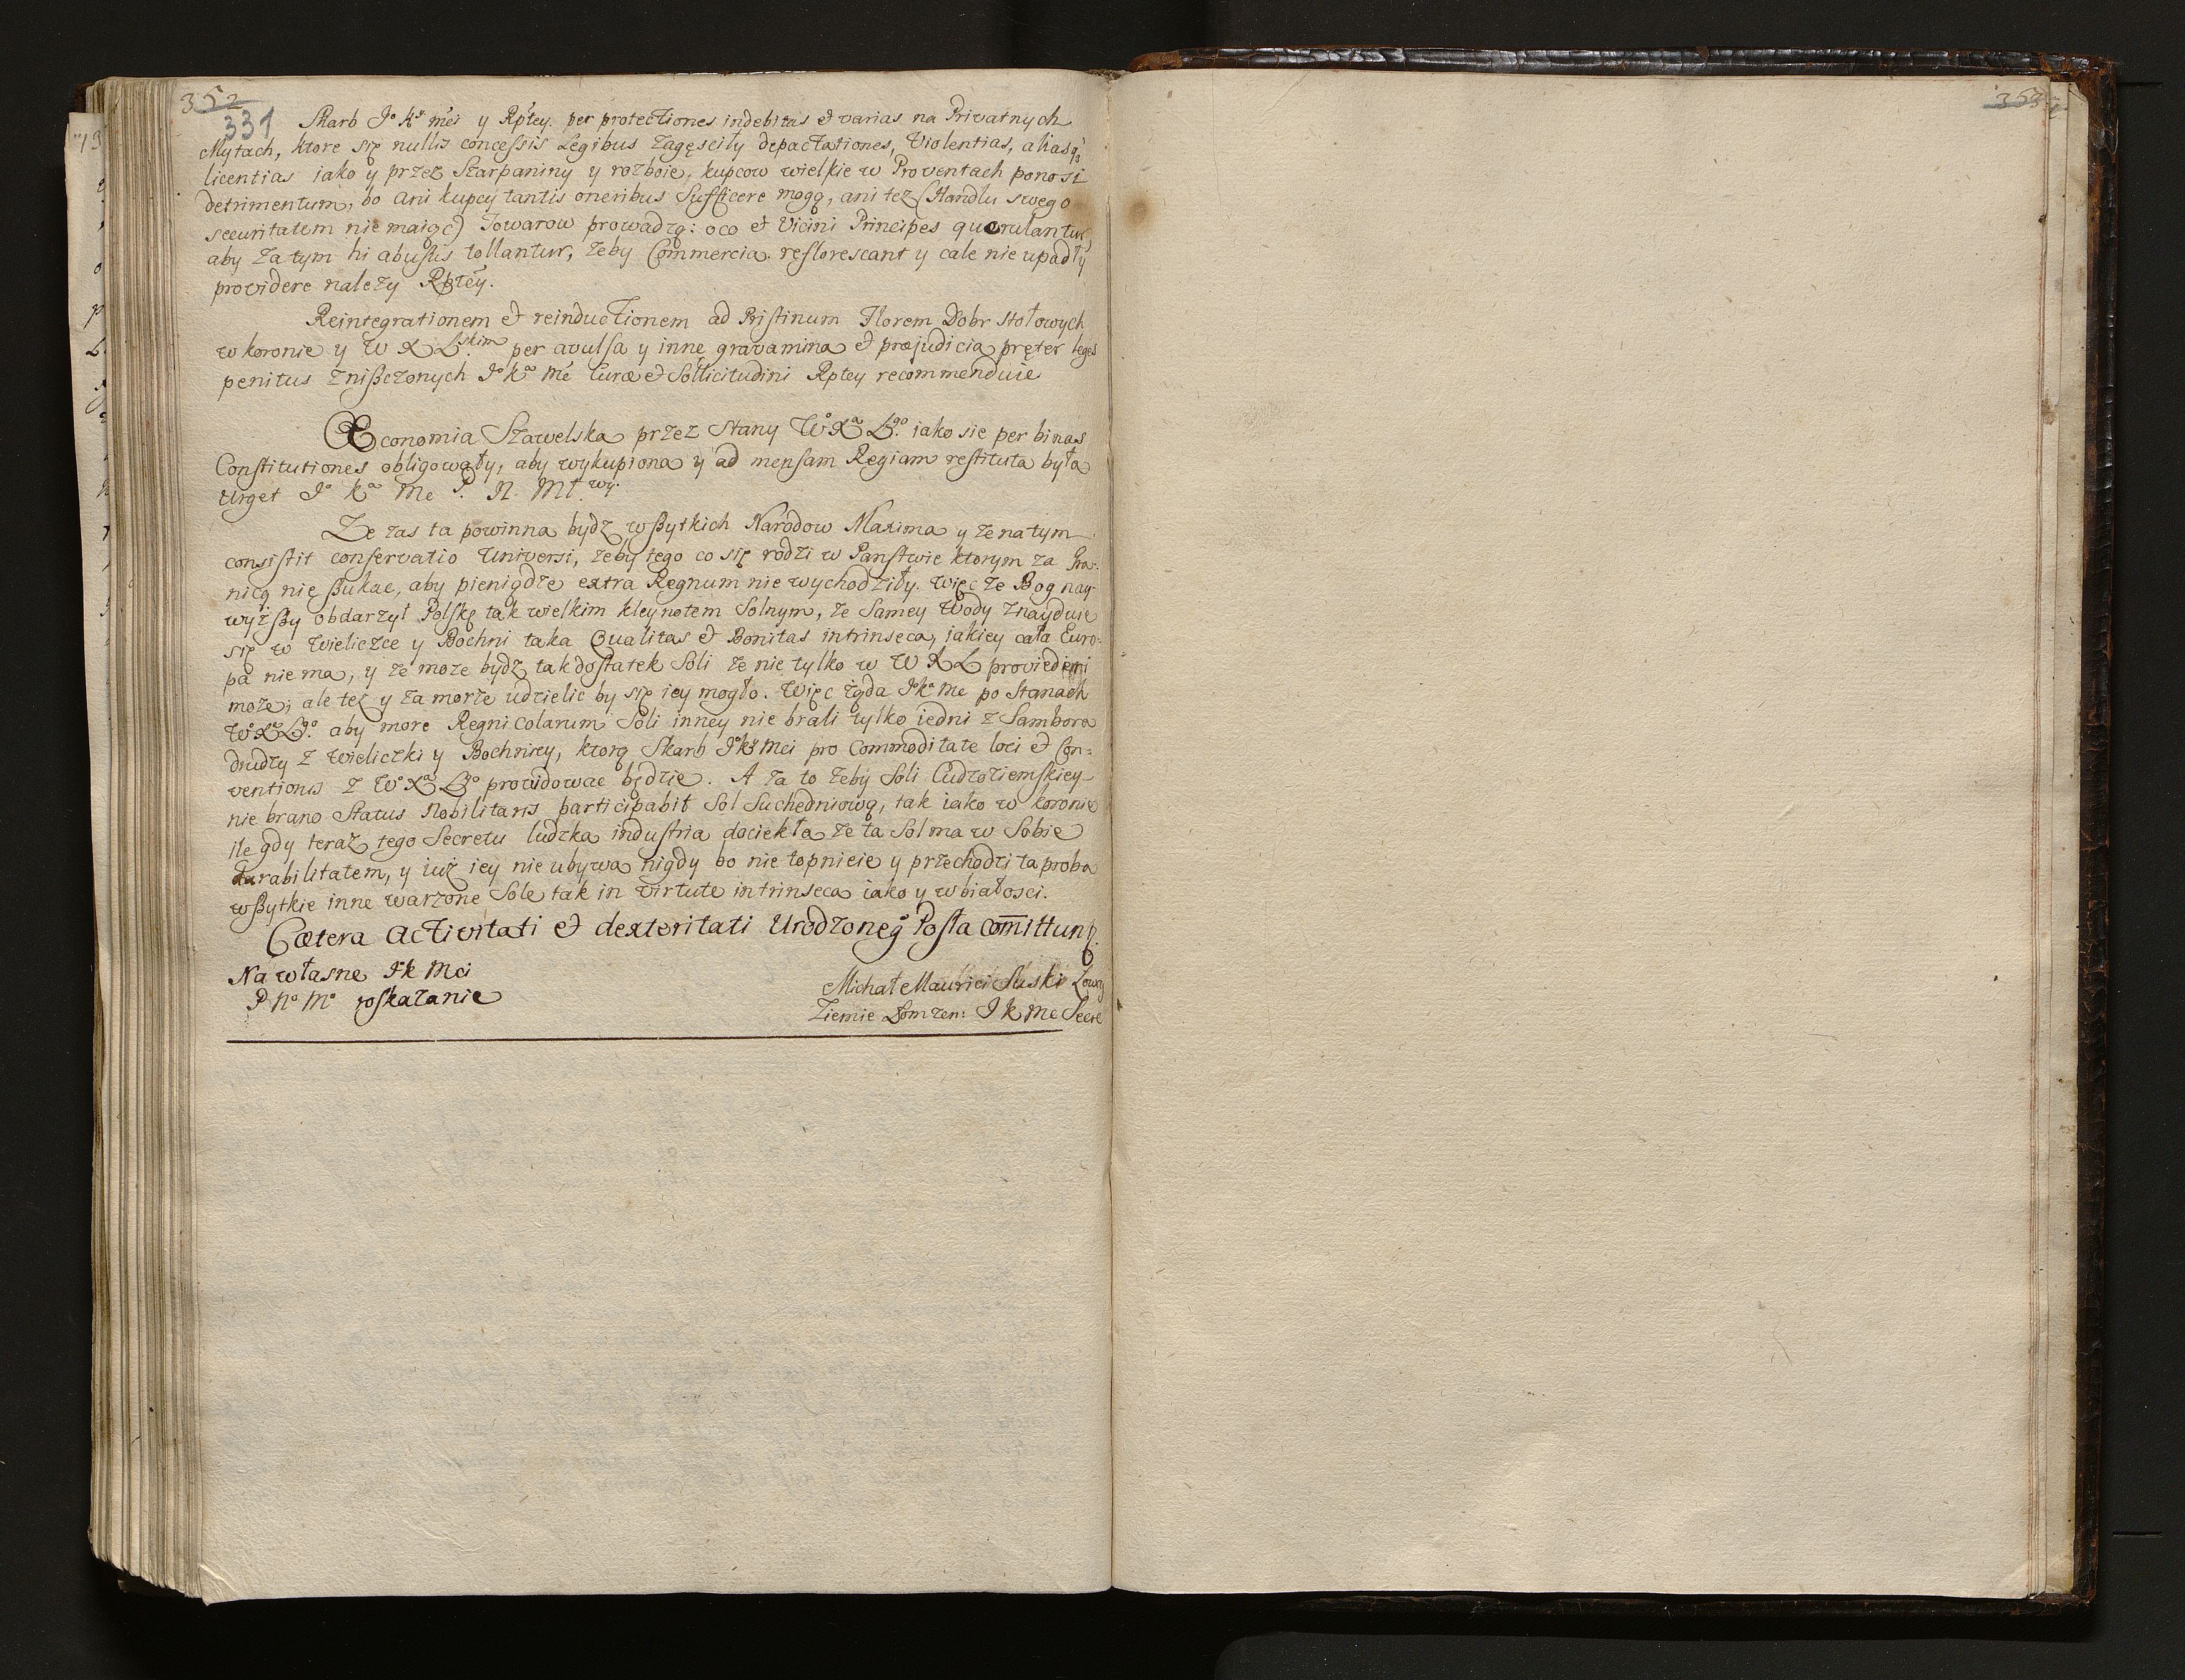 352
331
Skarb Jo Kr mci y Rptey. per protectiones indebitas et varias na Privatnych
Mytach, ktore się nullis concessis Legibus zagęsciły depactationes, Violentias, aliasq3
licentias iako y przez Szarpaniny y rozboie, kupcow wielkie w Proventach ponosi
detrimentum, bo ani kupcy tantis oneribus Sufficere mogą, ani tez (Handlu swego
securitatem nie maiąc) Towarow prowadzą: oco et Vicini Principes querulantur,
aby za tym hi abusus tollantur, zeby Commercia reflorescant y cale nie upadły
providere nalezy Rptey.
Reintegrationem et reinductionem ad Pristinum Florem Dobr Stołowych
w koronie y W X L.skim per avulsa y inne gravamina et præjudicia pręter leges
penitus znißczonych Jo Ka Me Curæ et Sollicitudini Rptey recommenduie
Œconomia Szawelska przez Stany Wo Xa Lgo. iako sie per binas
Constitutiones obligowały, aby wykupiona y ad mensam Regiam restituta była
Urget Jo Ka Me P. N. Mt.wy.
Ze zas ta powinna bydz wßytkich Narodow Maxima y ze na tym
consistit conservatio Universi, zeby tego co się rodzi w Panstwie ktorym za Gra-
nicą nie ßukac, aby pieniądze extra Regnum nie wychodziły. Więc ze Bog nay-
wyżßy obdarzył Polskę tak wielkim kleynotem Solnym, ze Samey Wody znayduie
się w Wieliczce y Bochni taka Qualitas et Bonitas intrinseca, jakiey cała Euro-
pa nie ma, y ze moze bydz tak dostatek Soli ze nie tylko w W X L provideri
moze, ale tez y za morze udzielic by się iey mogło. Więc ząda Jo Ka Me po Stanach
Wo Xa Lgo. aby more Regnicolarum Soli inney nie brali tylko iedni z Sambora
drudzy z Wieliczki y Bochniey, ktorą Skarb Jo Kr Mci pro Commoditate loci et Con=
ventionis z Wo Xa Lgo prowidowac będzie. A za to zeby Soli Cudzoziemskiey
nie brano Status Nobilitaris participabit Sol Suchedniową, tak iako w koronie
ile gdy teraz tego Secretu ludzka industria dociekła ze ta Sol ma w Sobie
durabilitatem, y iuż iey nie ubywa nigdy bo nie topnieie y przechodzi ta proba
wßytkie inne warzone Sole tak in virtute intrinseca iako y w białosci.
Cætera Activitati et dexteritati Urodzonego Posła comittuntur.
Na własne J K Mci
P. No Mo roskazanie
Michał Maurici Suski Łowcz
Ziemie Łomzen: J K Me Secre
353